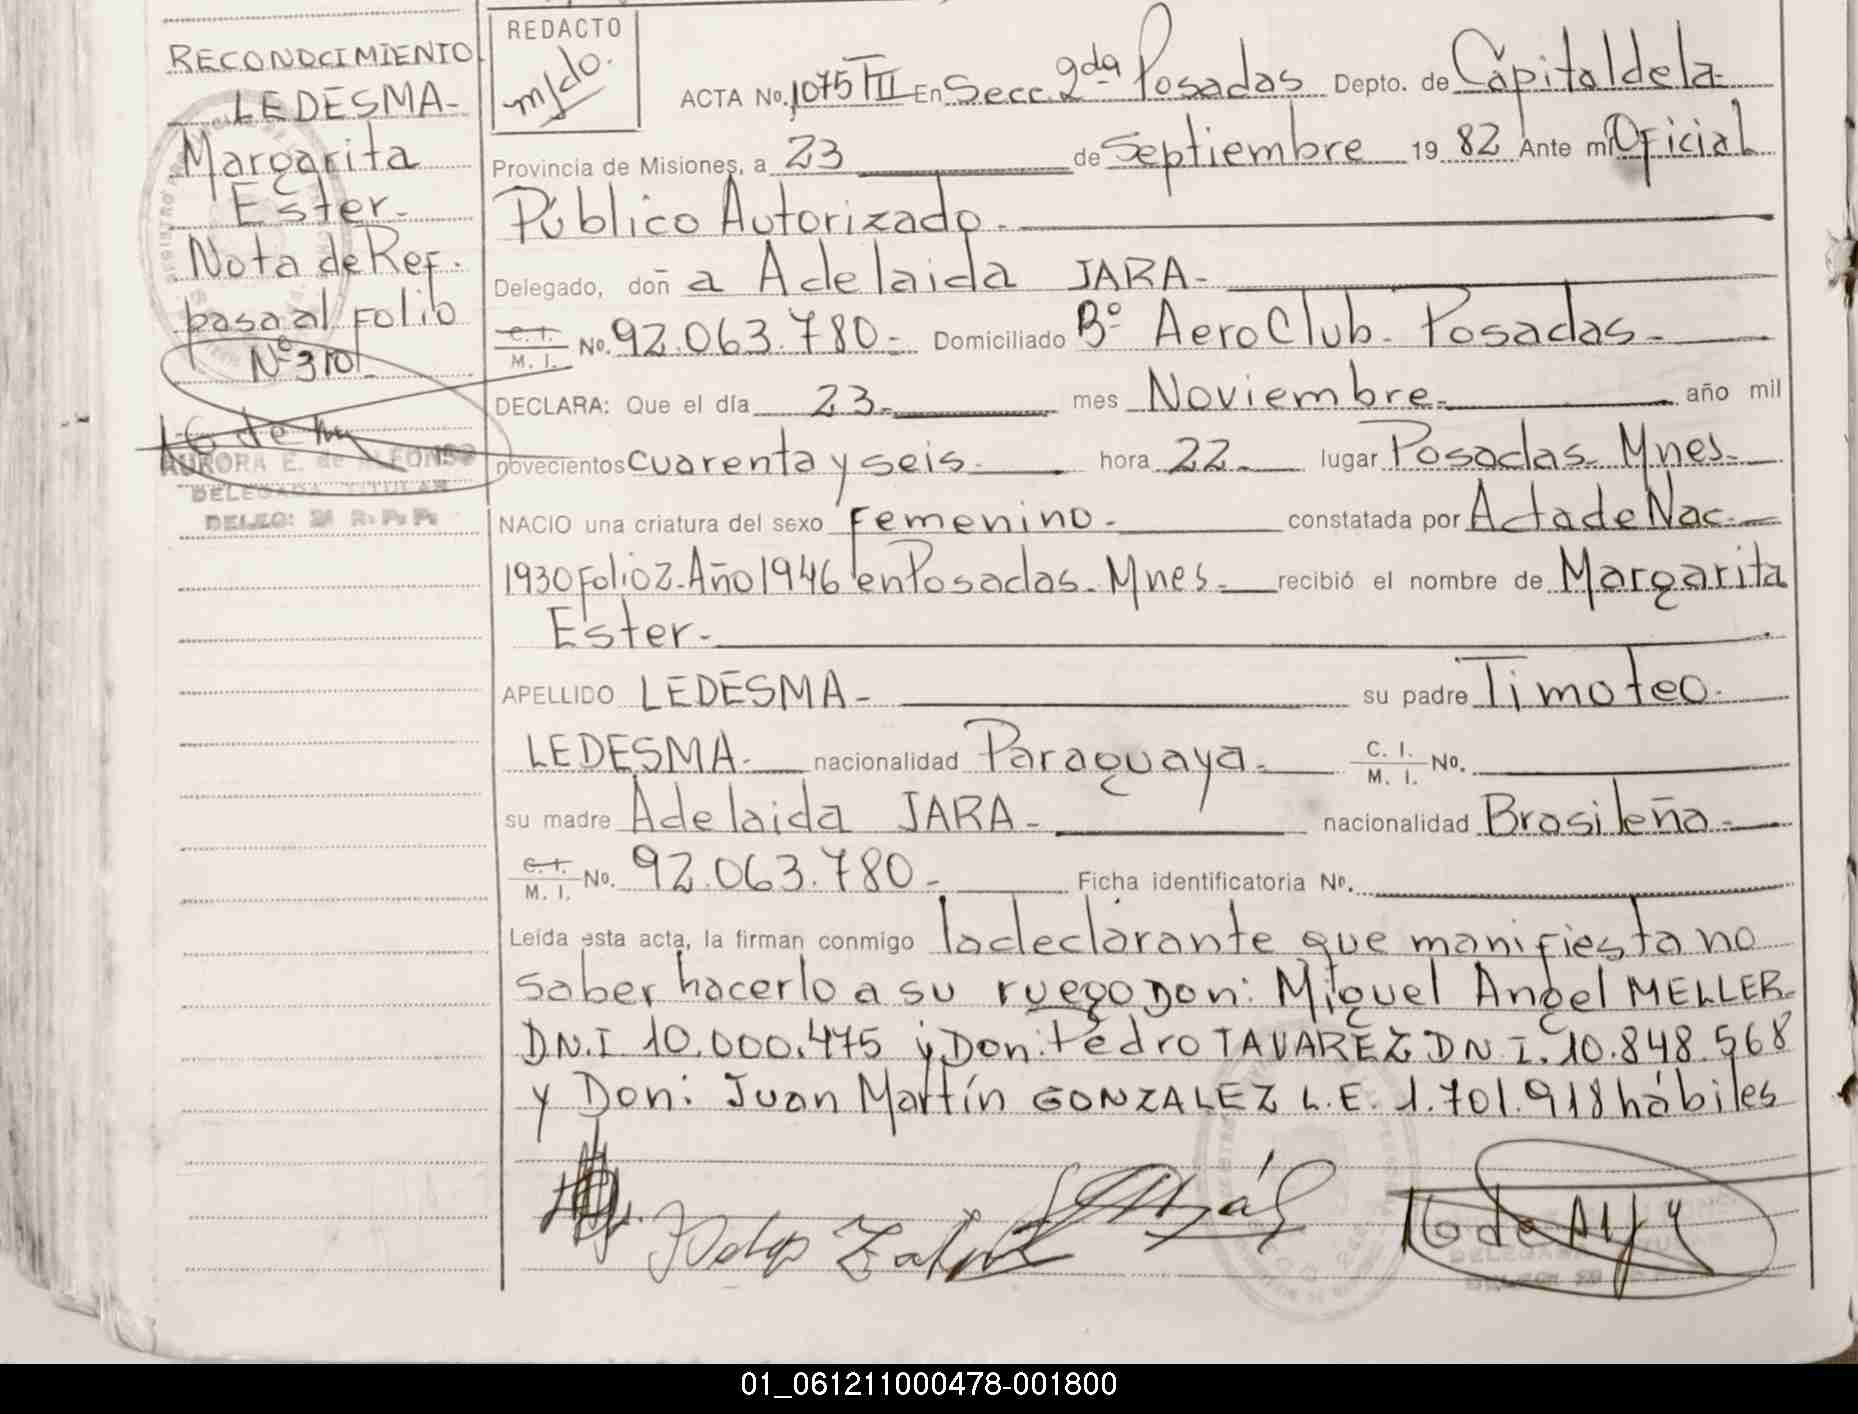 RECONOCIMIENTO
LEDESMA-
Margarita
Ester-
Nota de Ref.
pasa al Folio
Nº 310
AURORA E. de ALFONSO
DELEGADA TITULAR
REDACTO
ACTA No. 1075 TIII En Secc. 2da Posadas Depto. de Capital de la
Provincia de Misiones, a 23 de Septiembre 19 82 Ante mi Oficial
Público Autorizado.
Delegado, doñ a Adelaida JARA-
C. I. / M. I. No. 92.063.780- Domiciliado Bº AeroClub. Posadas-
DECLARA: Que el día 23- mes Noviembre- año mil
novecientos cuarenta y seis- hora 22- lugar Posadas- Mnes-
NACIO una criatura del sexo Femenino- constatada por Acta de Nac.
1930 Folio 2-Año 1946 en Posadas-Mnes- recibió el nombre de Margarita
Ester-
APELLIDO LEDESMA- su padre Timoteo-
LEDESMA- nacionalidad Paraguaya- C. I. / M. I. No.
su madre Adelaida JARA- nacionalidad Brasileña-
C. I. / M. I. No. 92.063.780- Ficha identificatoria No.
Leída esta acta, la firman conmigo la declarante que manifiesta no
saber hacerlo a su ruego Don: Miguel Angel MELLER-
D.N.I 10.000.475 y Don: Pedro TAVAREZ D N. I. 10.848.568
y Don: Juan Martín GONZALEZ L.E. 1.701.918 hábiles
01_061211000478-001800